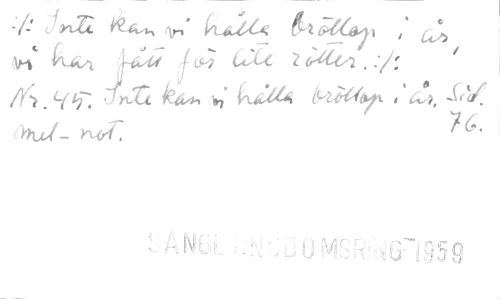 :/: Inte kan vi hålla bröllop i år,
vi har fått för lite rötter. :/:
Nr. 45. Inte kan vi hålla bröllop i år. Sid.
mel-not. 76.
UNGDOMSRING 1959